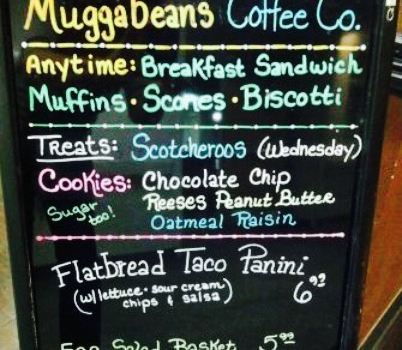 MuggaBeans Coffee Co.
Anytime: Breakfast Sandwich
Muffins · Scones · Biscotti
Treats: Scotcheroos (Wednesday)
Cookies: Chocolate Chip
Sugar too! Reeses Peanut Butter
Oatmeal Raisin
Flatbread Taco Panini
(w/ lettuce · sour cream 6.92
chips & salsa)
Egg Salad Basket 5.99